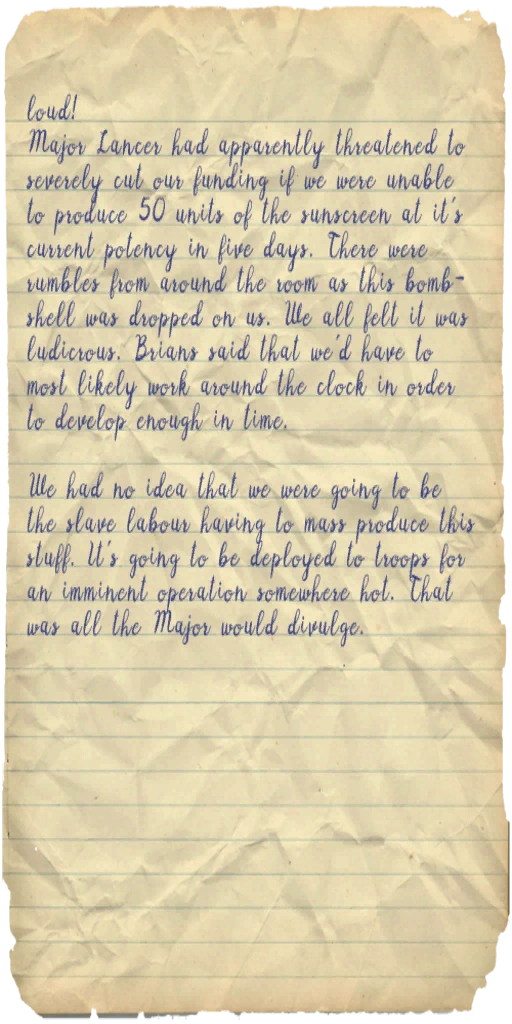 loud!
Major Lancer had apparently threatened to
severely cut our funding if we were unable
to produce 50 units of the sunscreen at it's
current potency in five days. There were
rumbles from around the room as this bomb-
shell was dropped on us. We all felt it was
ludicrous. Brians said that we'd have to
most likely work around the clock in order
to develop enough in time.

We had no idea that we were going to be
the slave labour having to mass produce this
stuff. It's going to be deployed to troops for
an imminent operation somewhere hot. That
was all the Major would divulge.